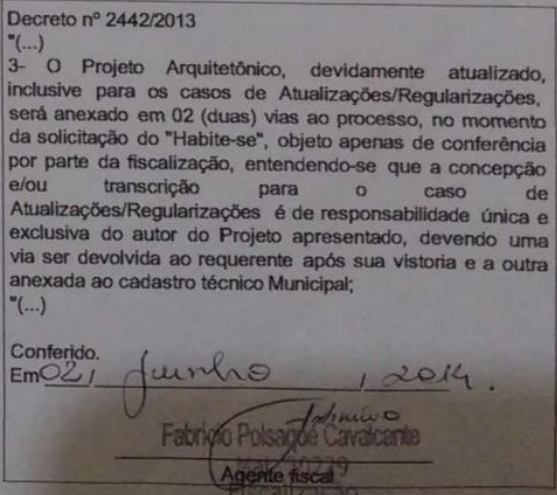 Decreto nº 2442/2013
"(...)
3- O Projeto Arquitetônico, devidamente atualizado,
inclusive para os casos de Atualizações/Regularizações,
será anexado em 02 (duas) vias ao processo, no momento
da solicitação do "Habite-se", objeto apenas de conferência
por parte da fiscalização, entendendo-se que a concepção
e/ou transcrição para o caso de
Atualizações/Regularizações é de responsabilidade única e
exclusiva do autor do Projeto apresentado, devendo uma
via ser devolvida ao requerente após sua vistoria e a outra
anexada ao cadastro técnico Municipal;
"(...)
Conferido.
Em 02 / Junho / 2014.
Fabricio Cavalcante
Agente fiscal
Fiscalização